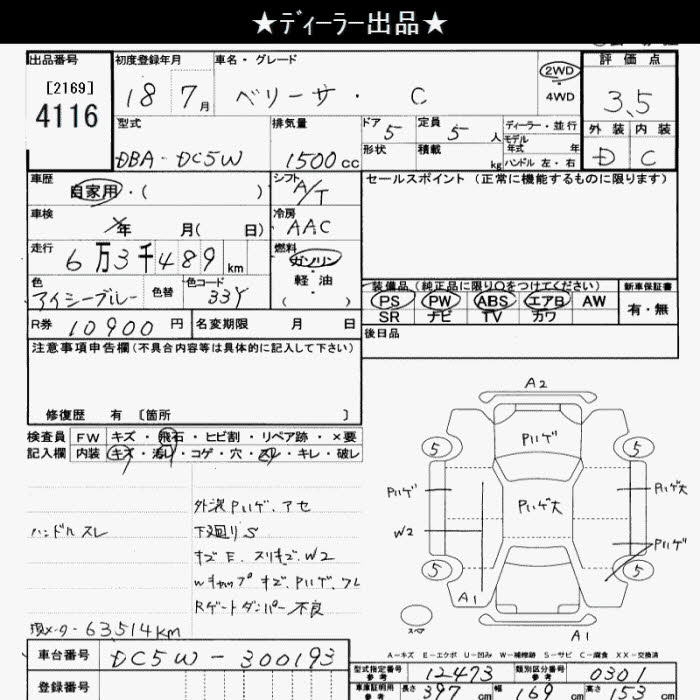 ★ディーラー出品★
出品番号 初度登録年月 車名・グレード 評価点
[2169]
4116
18 7月 ベリーサ・ C 2WD・4WD 3.5
型式 排気量 ドア 5 定員 5人 ディーラー・並行 外装 内装
DBA-DC5W 1500cc 形状 積載 kg モデル年式 年 ハンドル 左・右 D C
車歴 自家用・( ) シフト A/T セールスポイント(正常に機能するものに限ります)
車検 年 月( 日) 冷房 AAC
走行 6万3千489km 燃料 ガソリン・軽油 ( )
色 アイシーブルー 色替 色コード 33Y
装備品(純正品に限り○をつけてください) 新車保証書
PS PW ABS エアB AW 有・無
SR ナビ TV カワ
R券 10900円 名変期限 月 日 後日品
注意事項申告欄(不具合内容等は具体的に記入して下さい)
修復歴 有 [箇所 ]
検査員 FW キズ・飛石・ヒビ割・リペア跡・×要
記入欄 内装 キズ・汚れ・コゲ・穴・スレ・キレ・破レ
ハンドルスレ
外装Pハゲ、アセ
下廻りS
キズE、スリキズ、W2
Wキャップキズ、Pハゲ、ワレ
Rゲートダンパー不良
現メーター63,514km
A2
Pハゲ
5 5
Pハゲ Pハゲ大 Pハゲ大
W2 Pハゲ
5 5
A1
スペア A1
A-キズ E-エクボ U-凹み W-補修跡 S-サビ C-腐食 XX-交換済
車台番号 DC5W-300193
登録番号
型式指定番号 参考 12473 類別区分番号 参考 0301
車庫証明用 参考 長さ 397cm 幅 169cm 高さ 153cm